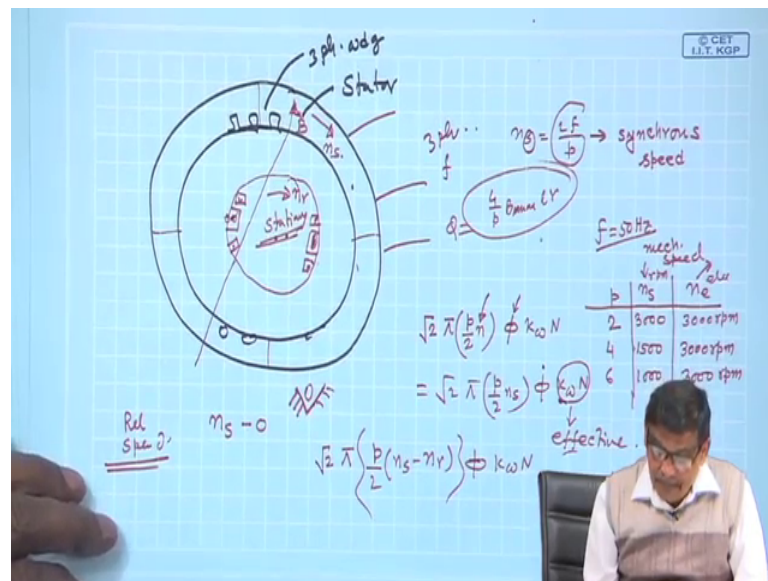 © CET
I.I.T. KGP
3 ph. wdg
Stator
n_s.
3 ph..
f
n_s = 2f/p → synchrous speed
→ n_r
Q = 4/p B_max l r
f = 50 Hz
mech. speed
↓ rpm
p n_s n_e
2 3000 3000 rpm
4 1500 3000 rpm
6 1000 3000 rpm
√2 π (p/2 n) φ k_ω N
= √2 π (p/2 n_s) φ k_ω N
↓
effective.
Rel
Speed.
n_s - 0
√2 π {p/2 (n_s - n_r)} φ k_ω N